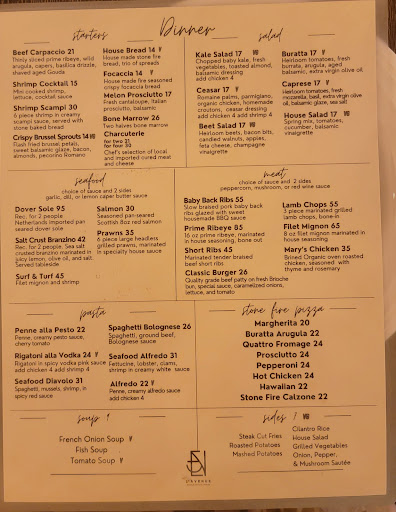 Dinner
starters
Beef Carpaccio 21
Thinly sliced prime ribeye, wild
arugula, capers, basilica drizzle,
shaved aged Gouda
Shrimp Cocktail 15
Mini cooked shrimp,
lettuce, cocktail sauce
Shrimp Scampi 30
6 piece shrimp in creamy
scampi sauce, served with
stone baked bread
Crispy Brussel Sprouts 14
Flash fried brussel, petals,
sweet balsamic glaze, bacon,
almonds, pecorino Romano
House Bread 14
House made stone fire
bread, trio of spreads
Focaccia 14
House made fire seasoned
crispy focaccia bread
Melon Prosciutto 17
Fresh cantaloupe, Italian
prosciutto, balsamic
Bone Marrow 26
Two halves bone marrow
Charcuterie
for two 21
for four 30
Chef's selection of local
and imported cured meat
and cheese
salad
Kale Salad 17
Chopped baby kale, fresh
vegetables, toasted almond,
balsamic dressing
add chicken 4
Ceasar 17
Romaine palms, parmigiano,
organic chicken, homemade
croutons, ceasar dressing
add chicken 4 add shrimp 4
Beet Salad 17
Heirloom beets, bacon bits,
candied walnuts, apples,
feta cheese, champagne
vinaigrette
Buratta 17
Heirloom tomatoes, fresh
burrata, arugula, aged
balsamic, extra virgin olive oil
Caprese 17
Heirloom tomatoes, fresh
mozzarella, basil, extra virgin olive
oil, balsamic glaze, sea salt
House Salad 17
Spring mix, tomatoes,
cucumber, balsamic
vinaigrette
seafood
choice of sauce and 2 sides
garlic, dill, or lemon caper butter sauce
Dover Sole 95
Rec. for 2 people
Netherlands imported pan
seared dover sole
Salt Crust Branzino 42
Rec. for 2 people, Sea salt
crusted branzino marinated in
juicy lemon, olive oil, and salt.
Served tableside
Surf & Turf 45
Filet mignon and shrimp
Salmon 30
Seasoned pan-seared
Scottish 8oz red salmon
Prawns 35
6 piece large headless
grilled prawns, marinated
in specialty house sauce
meat
choice of sauce and 2 sides
peppercorn, mushroom, or red wine sauce
Baby Back Ribs 55
Slow braised pork baby back
ribs glazed with sweet
housemade BBQ sauce
Prime Ribeye 85
16 oz prime ribeye, marinated
in house seasoning, bone out
Short Ribs 45
Marinated tender braised
beef short ribs
Classic Burger 26
Quality grade beef patty on fresh Brioche
bun, special sauce, caramelized onions,
lettuce, and tomato
Lamb Chops 55
3 piece marinated grilled
lamb chops, bone in
Filet Mignon 65
8 oz filet mignon marinated in
house seasoning
Mary's Chicken 35
Brined Organic oven roasted
chicken, seasoned with
thyme and rosemary
pasta
Penne alla Pesto 22
Penne, creamy pesto sauce,
cherry tomato
Rigatoni alla Vodka 24
Rigatoni in spicy vodka pink sauce
add chicken 4 add shrimp 4
Seafood Diavolo 31
Spaghetti, mussels, shrimp, in
spicy red sauce
Spaghetti Bolognese 26
Spaghetti, ground beef,
Bolognese sauce
Seafood Alfredo 31
Fettucine, lobster, clams,
shrimp in creamy white sauce
Alfredo 22
Penne, creamy alfredo sauce
add chicken 4
stone fire pizza
Margherita 20
Buratta Arugula 22
Quattro Fromage 24
Prosciutto 24
Pepperoni 24
Hot Chicken 24
Hawaiian 22
Stone Fire Calzone 22
soup 9
French Onion Soup
Fish Soup
Tomato Soup
sides 7
Steak Cut Fries
Roasted Potatoes
Mashed Potatoes
Cilantro Rice
House Salad
Grilled Vegetables
Onion, Pepper,
& Mushroom Sautée